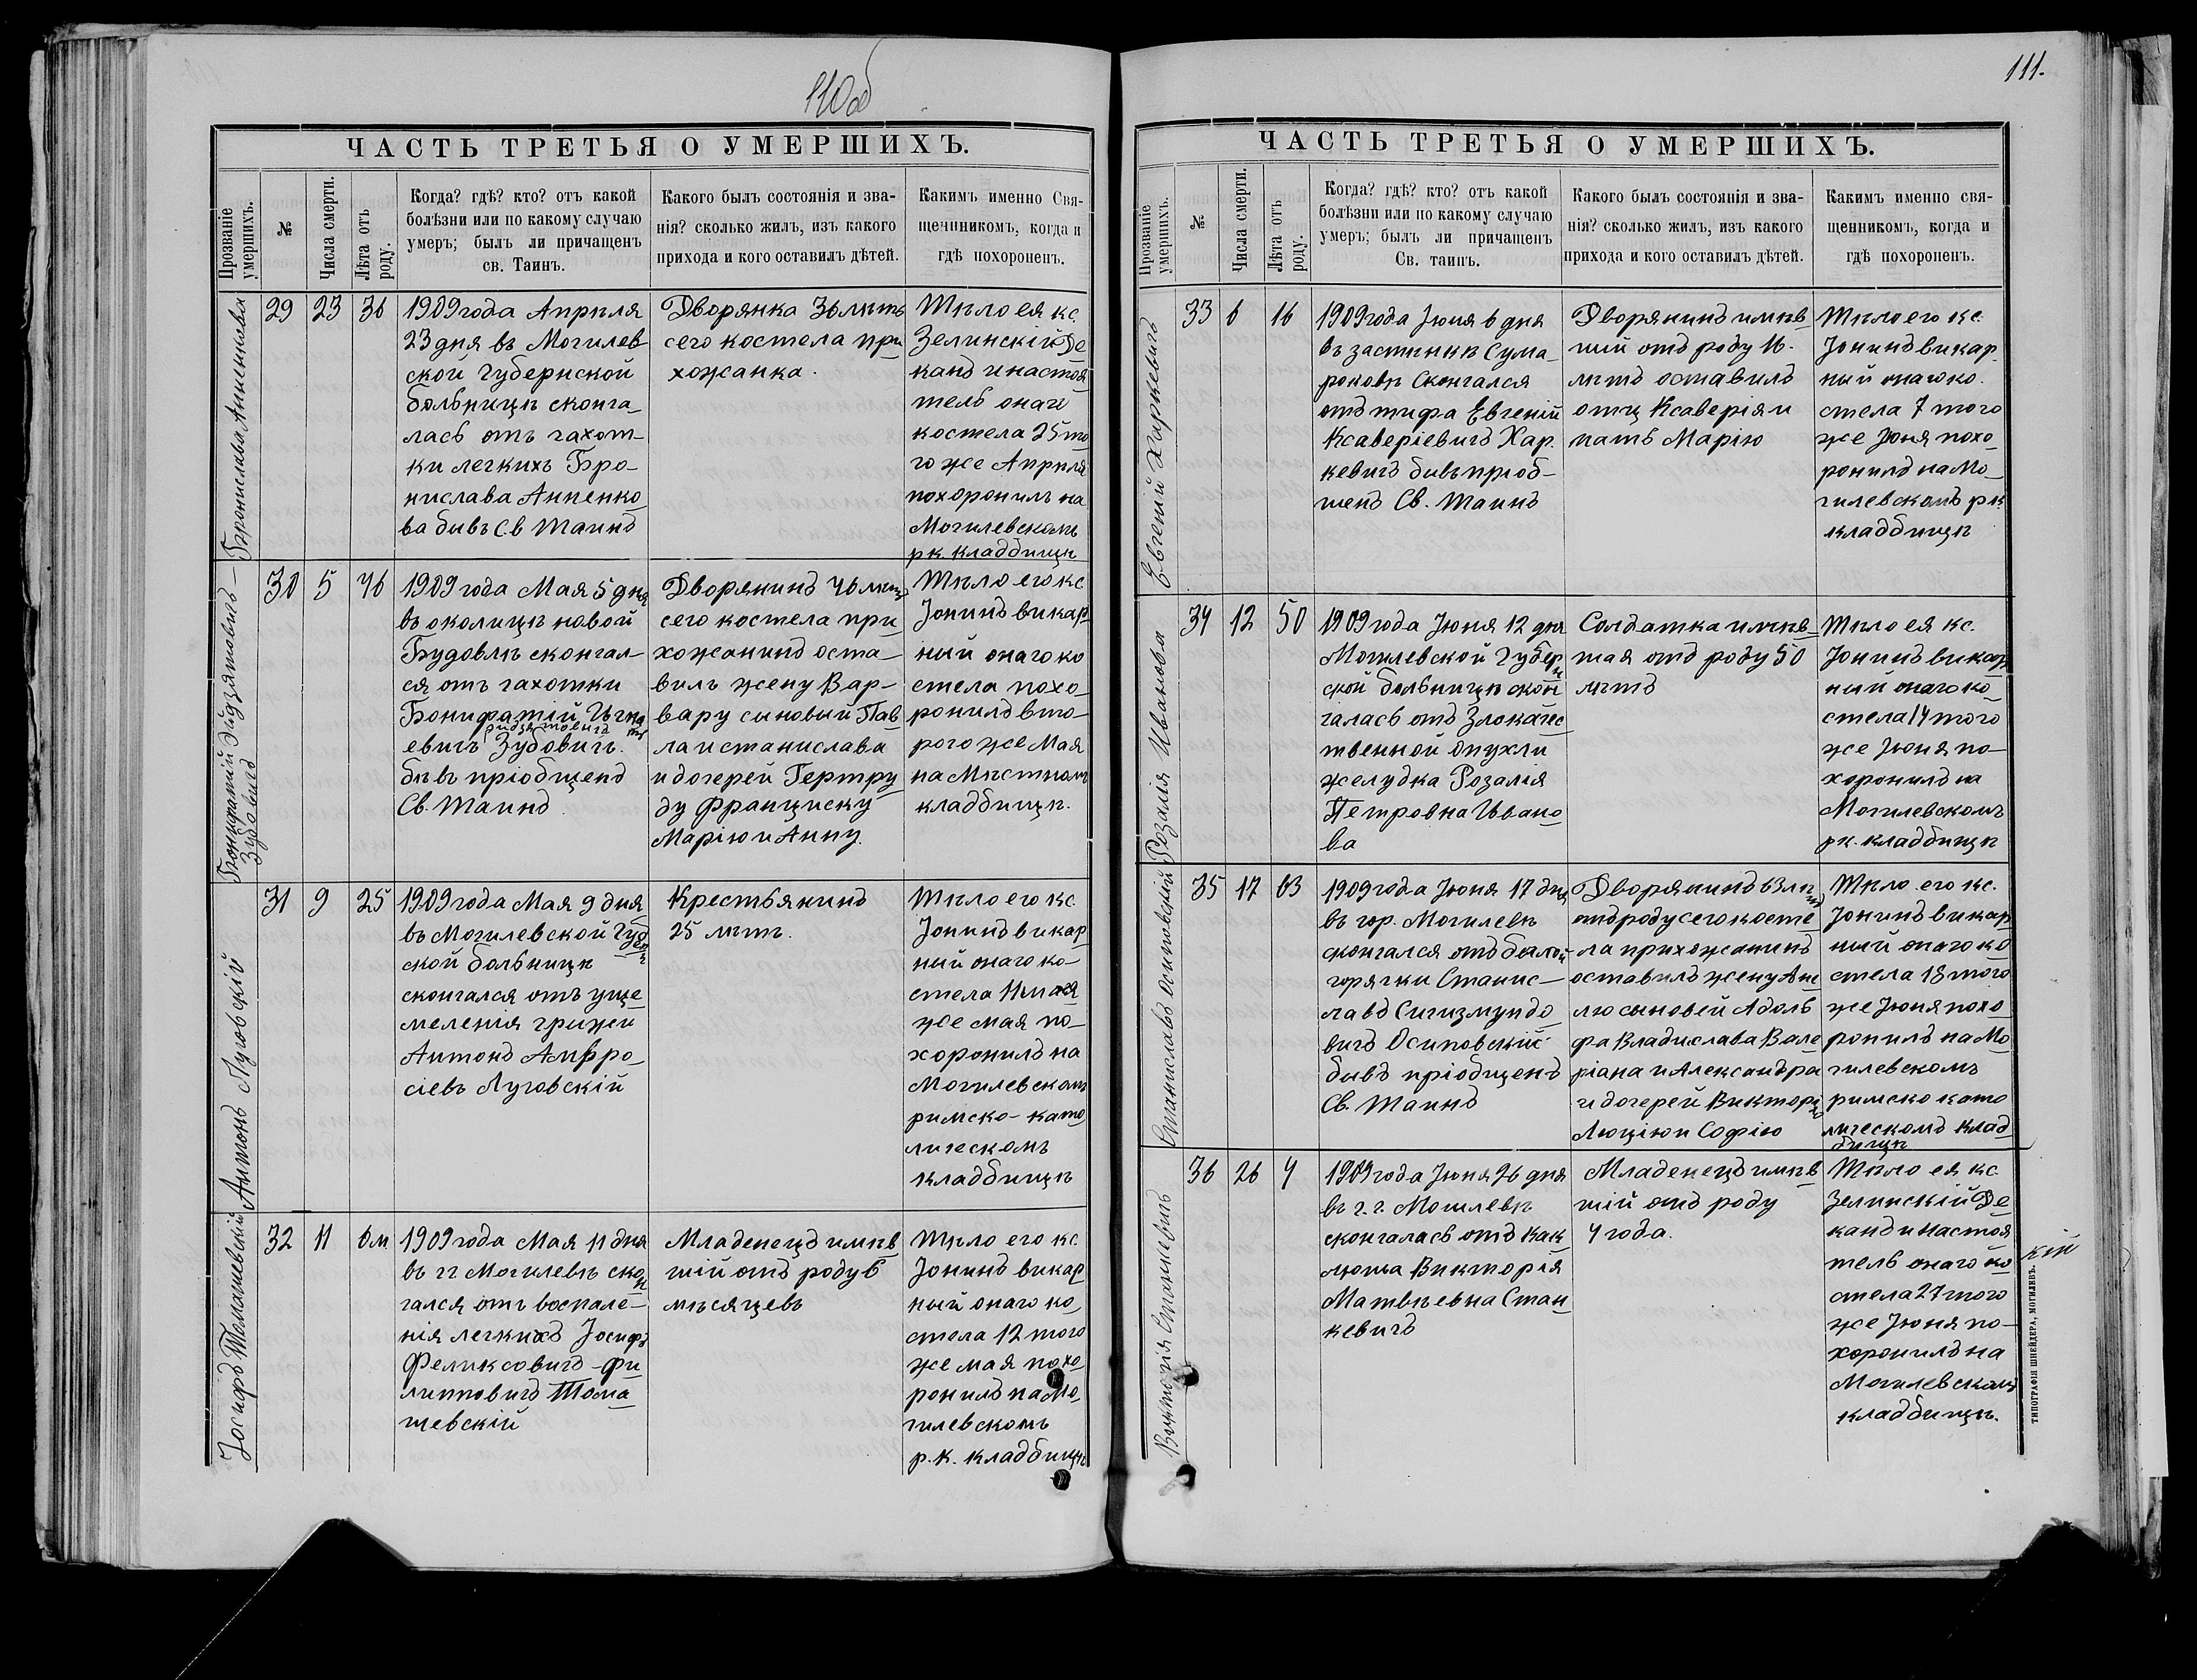 110об
ЧАСТЬ ТРЕТЬЯ О УМЕРШИХЪ.
Прозваніе умершихъ.
№
Числа смерти.
Лѣта отъ роду.
Когда? гдѣ? кто? отъ какой
болѣзни или по какому случаю
умеръ; былъ ли причащенъ
св. Таинъ.
Какого былъ состоянія и зва-
нія? сколько жилъ, изъ какого
прихода и кого оставилъ дѣтей.
Какимъ именно Свя-
щенникомъ, когда и
гдѣ похороненъ.
Бронислава Анненкова
29
23
36
1909 года Апрѣля
23 дня въ Могилев
ской Губернской
больницѣ сконча
лась отъ чахот-
ки легкихъ Бро-
нислава Анненко
ва бывъ Св Таинъ
Дворянка 36 лѣтъ
сего костела при
хожанка.
Тѣло ея кс
Зелинскій Де
канъ и настоя
тель онаго
костела 25 то
го же Апрѣля
похоронилъ на
Могилевскомъ
рк. кладбищѣ
Бонифатій Эйдзятовичъ-
Зубовичъ
30
5
46
1909 года Мая 5 дня
въ околицѣ новой
Будовлѣ скончал-
ся отъ чахотки
Бонифатій Игна
евичъ Зубовичъ.
бывъ пріобщенъ
Св. Таинъ
Дворянинъ 46 лѣтъ
сего костела при
хожанинъ оста-
вилъ жену Вар-
вару сыновый Пав
ла и станислава
и дочерей Гертру
ду Франциску
Марію и Анну.
Тѣло его кс
Іонинъ викар
ный онаго ко
стела похо-
ронилъ вто-
рого же Мая
на Мѣстномъ
кладбищѣ.
Антонъ Луговскій
31
9
25
1909 года Мая 9 дня
въ Могилевской Губерн
ской больницѣ
скончался отъ уще
мленія грижи
Антонъ Амвро
сіевъ Луговскій
Крестьянинъ
25 лѣтъ.
Тѣло его кс
Іонинъ викар
ный онаго ко-
стела 11
же мая по-
хоронилъ на
Могилевскомъ
римско-като
лическомъ
кладбищѣ
Іосифъ Томашевскій
32
11
6м
1909 года Мая 11 дня
въ гг Могилевѣ скон
чался отъ воспале-
нія легкихъ Іосифъ
Феликсовичъ-Фи
липповичъ Тома
шевскій
Младенецъ имѣв
шій отъ роду 6
мѣсяцевъ
Тѣло его кс
Іонинъ викар
ный онаго ко
стела 12 того
же мая похо
ронилъ на Мо
гилевскомъ
р.к. кладбищѣ
111.
ЧАСТЬ ТРЕТЬЯ О УМЕРШИХЪ.
Прозваніе умершихъ.
№
Числа смерти.
Лѣта отъ роду.
Когда? гдѣ? кто? отъ какой
болѣзни или по какому случаю
умеръ; былъ ли причащенъ
Св. таинъ.
Какого былъ состоянія и зва-
нія? сколько жилъ, изъ какого
прихода и кого оставилъ дѣтей.
Какимъ именно свя-
щенникомъ, когда и
гдѣ похороненъ.
Евгеній Харкевичъ
33
6
16
1909 года Іюня 6 дня
въ застѣнкѣ Сума-
роковѣ Скончался
отъ тифа Евгеній
Ксаверіевичъ Хар
кевичъ бывъ пріоб-
щенъ Св. Таинъ
Дворянинъ имѣв
шій отъ роду 16.
лѣтъ оставилъ
отц Ксаверія и
мать Марію
Тѣло его кс.
Іонинъ викар
ный онаго ко.
стела 7 того
же Іюня похо
ронилъ на Мо
гилевскомъ рк.
кладбищѣ
Розалія Иванова
34
12
50
1909 года Іюня 12 дня
Могилевской Губерн
ской больницѣ скон
чалась отъ Злокачес
твенной опухли
желудка Розалія
Петровна Ивано
ва
Солдатка имѣв
шая отъ роду 50
лѣтъ
Тѣло ея кс.
Іонинъ викар
ный онаго ко
стела 14 того
же Іюня по-
хоронилъ на
Могилевскомъ
рк. кладбищѣ
Станиславъ Осиповскій
35
17
63
1909 года Іюня 17 дня
въ гор. Могилевѣ
скончался отъ бѣлой
горячки Станис-
лавъ Сигизмундо
вичъ Осиповскій
бывъ пріобщенъ
Св. Таинъ
Дворянинъ 63 лѣтъ
отъ роду сего косте
ла прихожанинъ
оставилъ жену Ане
лю сыновей Адоль
фа Владислава Вале
ріана и Александра
и дочерей Викторію
Люцію и Софію
Тѣло его кс.
Іонинъ викар
ный онаго ко
стела 18 того
же Іюня похо
ронилъ на Мо
гилевскомъ
римско като
лическомъ клад
бищѣ
Викторія Станкевичъ
36
26
4
1909 года Іюня 26 дня
въ г. г. Могилевѣ
скончалась отъ Кок
люша Викторія
Матвѣевна Стан
кевичъ
Младенецъ имѣв
шій отъ роду
4 года.
Тѣло ея кс.
Зелинскій Де
канъ и настоя
тель онаго ко
стела 27 того
же Іюня по-
хоронилъ на
Могилевскомъ
кладбищѣ.
ТИПОГРАФІЯ ШНЕЙДЕРА, МОГИЛЕВЪ.